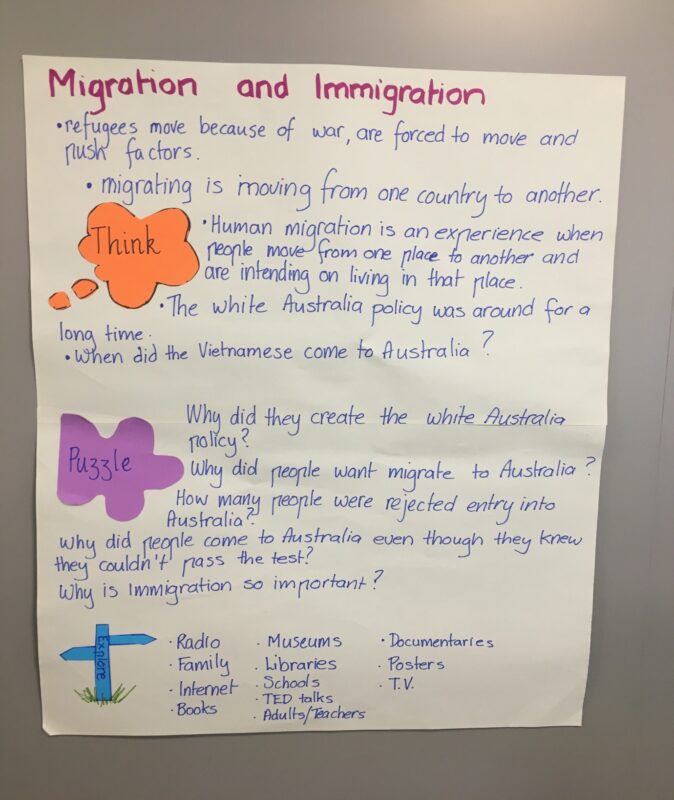 Migration and Immigration
• refugees move because of war, are forced to move and
push factors.
• migrating is moving from one country to another.
Think
• Human migration is an experience when
people move from one place to another and
are intending on living in that place.
• The white Australia policy was around for a
long time.
• When did the Vietnamese come to Australia?
Puzzle
Why did they create the white Australia
policy?
Why did people want migrate to Australia?
How many people were rejected entry into
Australia?
Why did people come to Australia even though they knew
they couldn't pass the test?
Why is Immigration so important?
Explore
· Radio
· Family
· Internet
· Books
· Museums
· Libraries
· Schools
· TED talks
· Adults/Teachers
· Documentaries
· Posters
· T.V.